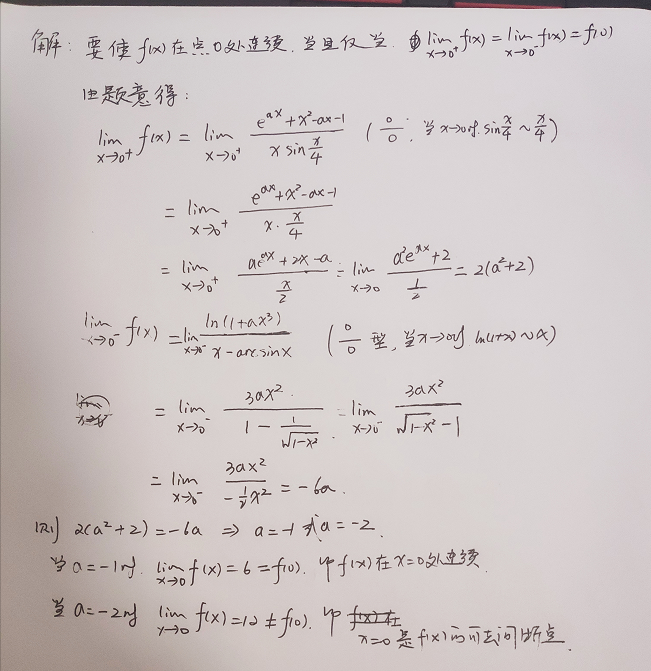 解：要使f(x)在点0处连续，当且仅当 lim_{x→0⁺} f(x) = lim_{x→0⁻} f(x) = f(0)
由题意得：
lim_{x→0⁺} f(x) = lim_{x→0⁺} (e^{ax}+x²-ax-1)/(x sin x/4) (0/0, 当x→0时, sin x/4 ~ x/4)
= lim_{x→0⁺} (e^{ax}+x²-ax-1)/(x·x/4)
= lim_{x→0⁺} (ae^{ax}+2x-a)/(x/2) = lim_{x→0} (a²e^{ax}+2)/(1/2) = 2(a²+2)
lim_{x→0⁻} f(x) = lim_{x→0⁻} ln(1+ax³)/(x-arcsinx) (0/0型, 当x→0时 ln(1+x)~x)
= lim_{x→0⁻} 3ax²/(1-1/√(1-x²)) = lim_{x→0⁻} 3ax²/(√(1-x²)-1)
= lim_{x→0⁻} 3ax²/(-½x²) = -6a.
则 2(a²+2) = -6a ⇒ a=-1或a=-2.
当a=-1时, lim_{x→0} f(x)=6=f(0). 即f(x)在x=0处连续.
当a=-2时 lim_{x→0} f(x)=12≠f(0). 即 x=0是f(x)的可去间断点.